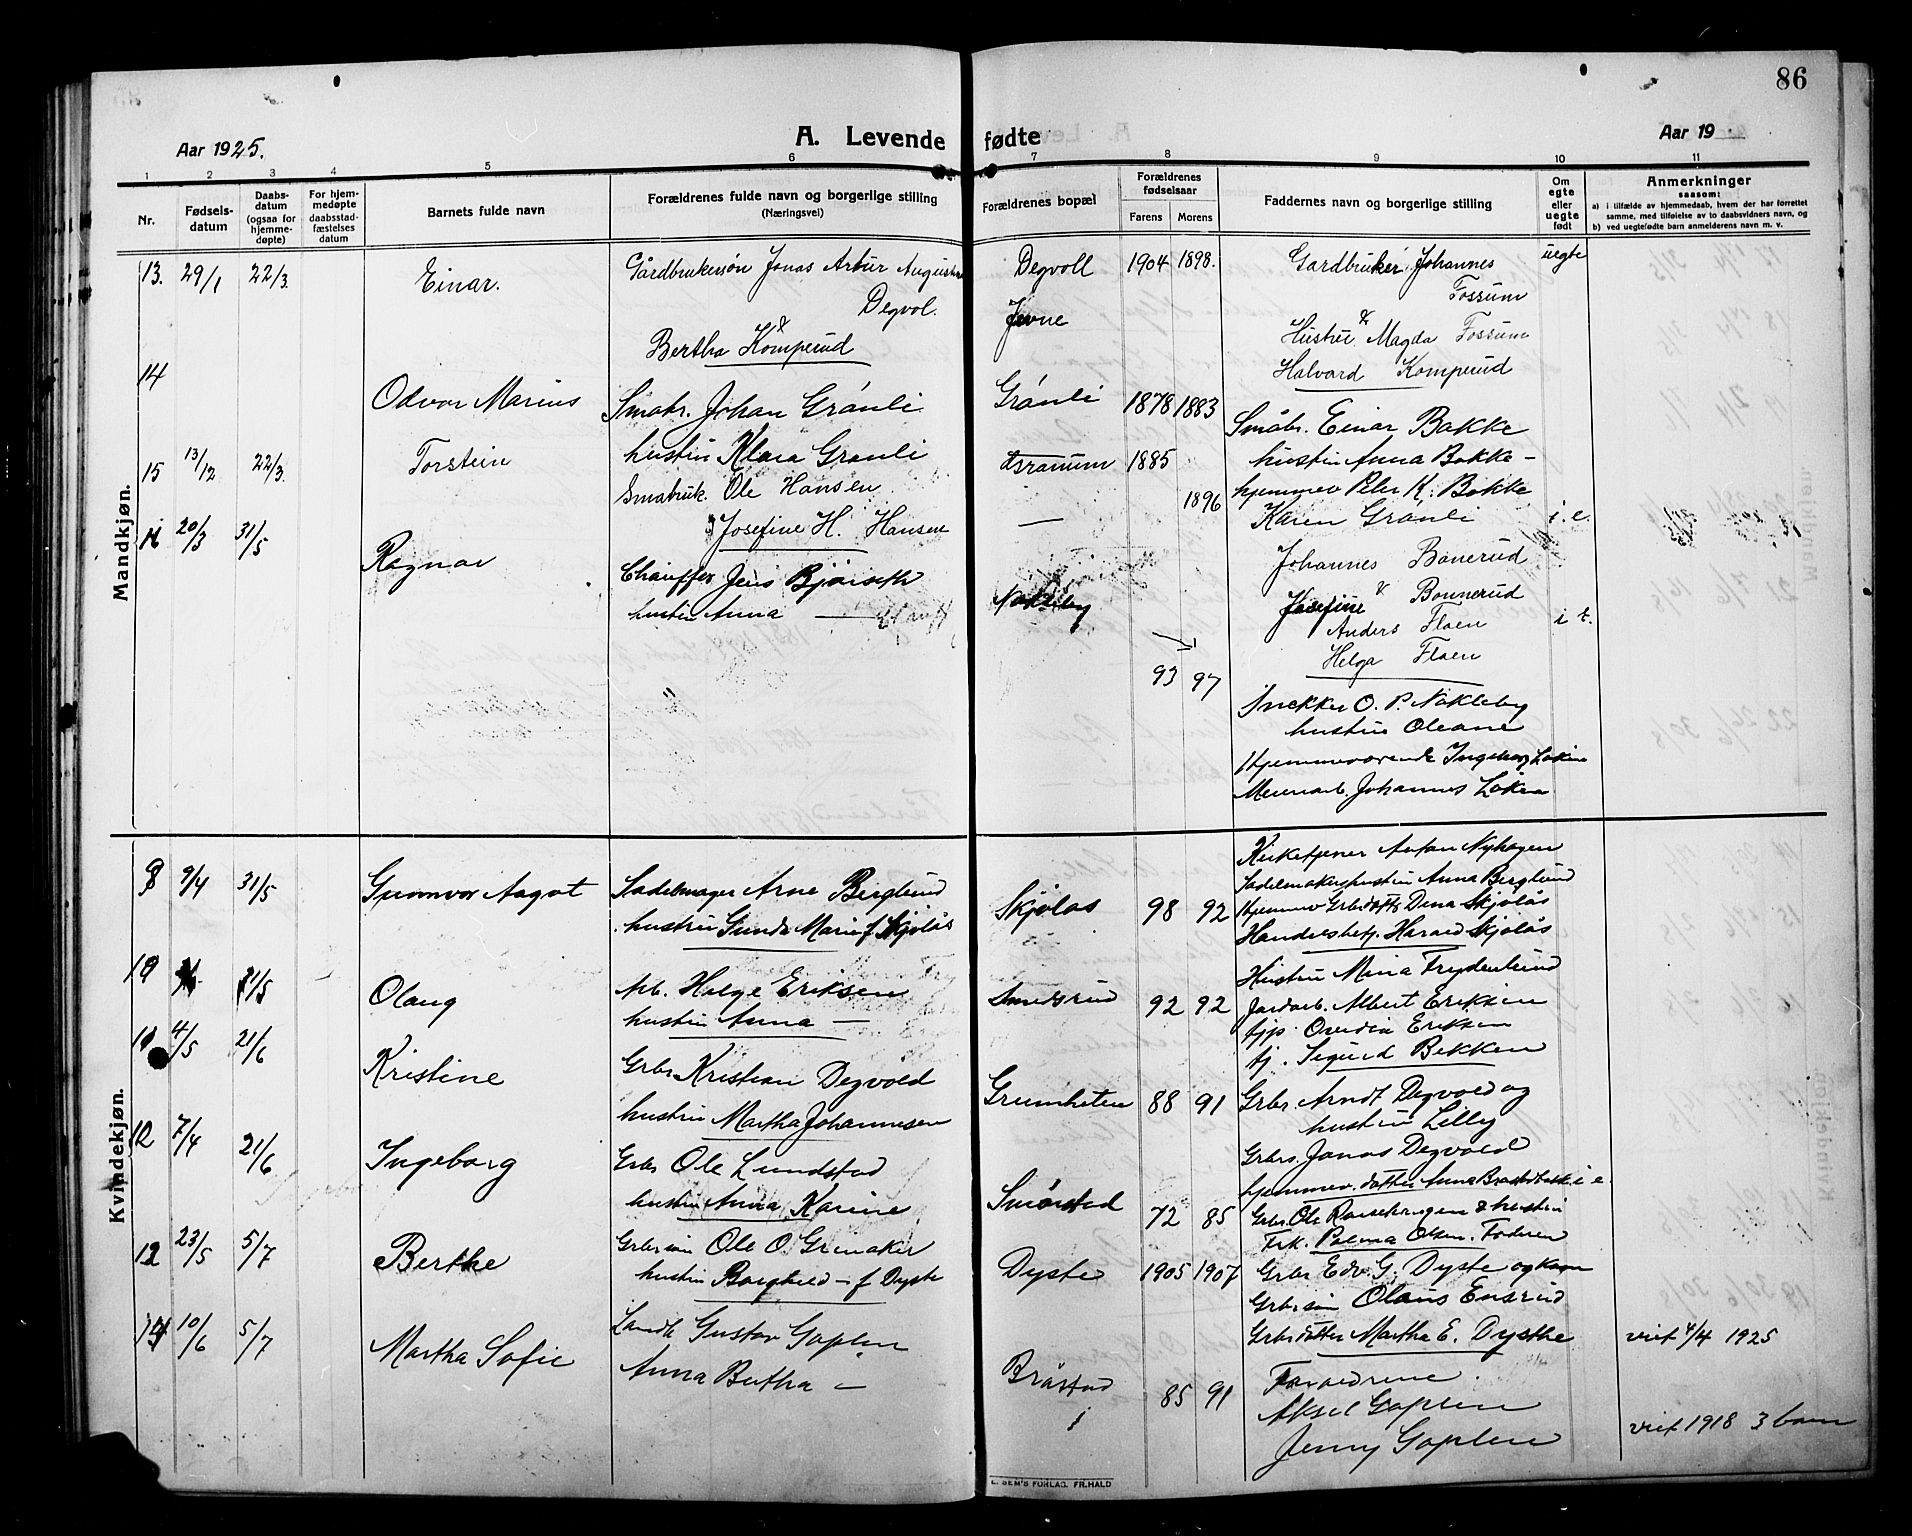 86
Aar 1925.
A. Levende fødte
Aar 19
1 2 3 4 5 6 7 8 9 10 11
Nr.
Fødsels-
datum
Daabs-
datum
(ogsaa for
hjemme-
døpte)
For hjem-
medøpte
daabsstad-
fæstelses
datum
Barnets fulde navn
Forældrenes fulde navn og borgerlige stilling
(Næringsvei)
Forældrenes bopæl
Forældrenes
fødselsaar
Farens Morens
Faddernes navn og borgerlige stilling
Om
egte
eller
uegte
født
Anmerkninger
saasom:
a) i tilfælde av hjemmedaab, hvem der har forrettet
samme, med tilføielse av to daabsvidners navn, og
b) ved uegtefødte barn anmelderens navn m. v.
Mandkjøn.
13. 29/1 22/3 Einar. Gårdbrukersøn Jonas Artur August Degvoll 1904 1898. Gardbruker Johannes uegte
Degvol. Fossum
& Jevne &
Hustru Magda Fossum
Bertha Komperud
Halvard Komperud
14 Odvar Marius Smabr. Johan Grånli Grånli 1878 1883
Småbr. Einar Bakke
hustru Klara Granli hustru Anna Bakke -
15 13/12 22/3. Torstein Smabruk. Ole Hansen 1885
1896 hjemmev Peter K. Bakke
Karen Grånli i. e.
& Josefine H. Hansen —
Johannes Bonerud
&
Josefine Bonnerud
16 20/3 31/5 Ragnar Chauffør Jens Bjørseth
hustru Anna — Nøkleby
Anders Floen i e.
Helga Floen
93 97
Snekker O. P. Nøkleby
hustru Oleane
Hjemmeværende Ingeborg Løken
Meieriarb. Johannes Løken
Kvindekjøn.
9 9/4 31/5 Gunnvor Aagot Sadelmager Arne Berglund Skjølås 98 92
hustru Gunda Marie f. Skjølås
Kirketjener Anton Nyhagen
Sadelmakerhustru Anna Berglund
Hjemmev Grbrdatter Dina Skjølås
Handelsbetj. Harald Skjølås
10 31/5 Olaug Arb. Helge Eriksen Smedsrud 92 92
hustru Anna —
Hustru Mina Frydenlund
Jordarb. Albert Eriksen
tjp. Ovedia Eriksen
tj. Sigurd Bekken
11 4/5 21/6 Kristine Grbr Kristian Degvold Grumheten 88 91
hustru Martha Johannesen
Grbr. Arndt Degvold og
hustru Lilly
Grbrs. Jonas Degvold
hjemmev. datter Anna i e.
12 7/4 21/6 Ingeborg Grbr Ole Lundstad Smørstad 72 85
hustru Anna Karine
Grbr. Ole & hustru
Frk. Palma Olsen. Faderen
23/5 5/7 Berthe Grbrsøn Ole O. Grimaker Dyste 1905 1907
hustru Borghild — f Dyste
Grbr Edv. G. Dyste og kone
Grbrsøn Olaus Ensrud
Grbrdatter Martha E. Dysthe viet 4/4 1925
14 10/6 5/7 Martha Sofie Landh Gustav Gaplen Bråstad 85 91
Anna Bertha —
Forældrene.
Aksel Gaplen
Jenny Gaplen
viet 1918 3 barn
E. SEM'S FORLAG. FR. HALD